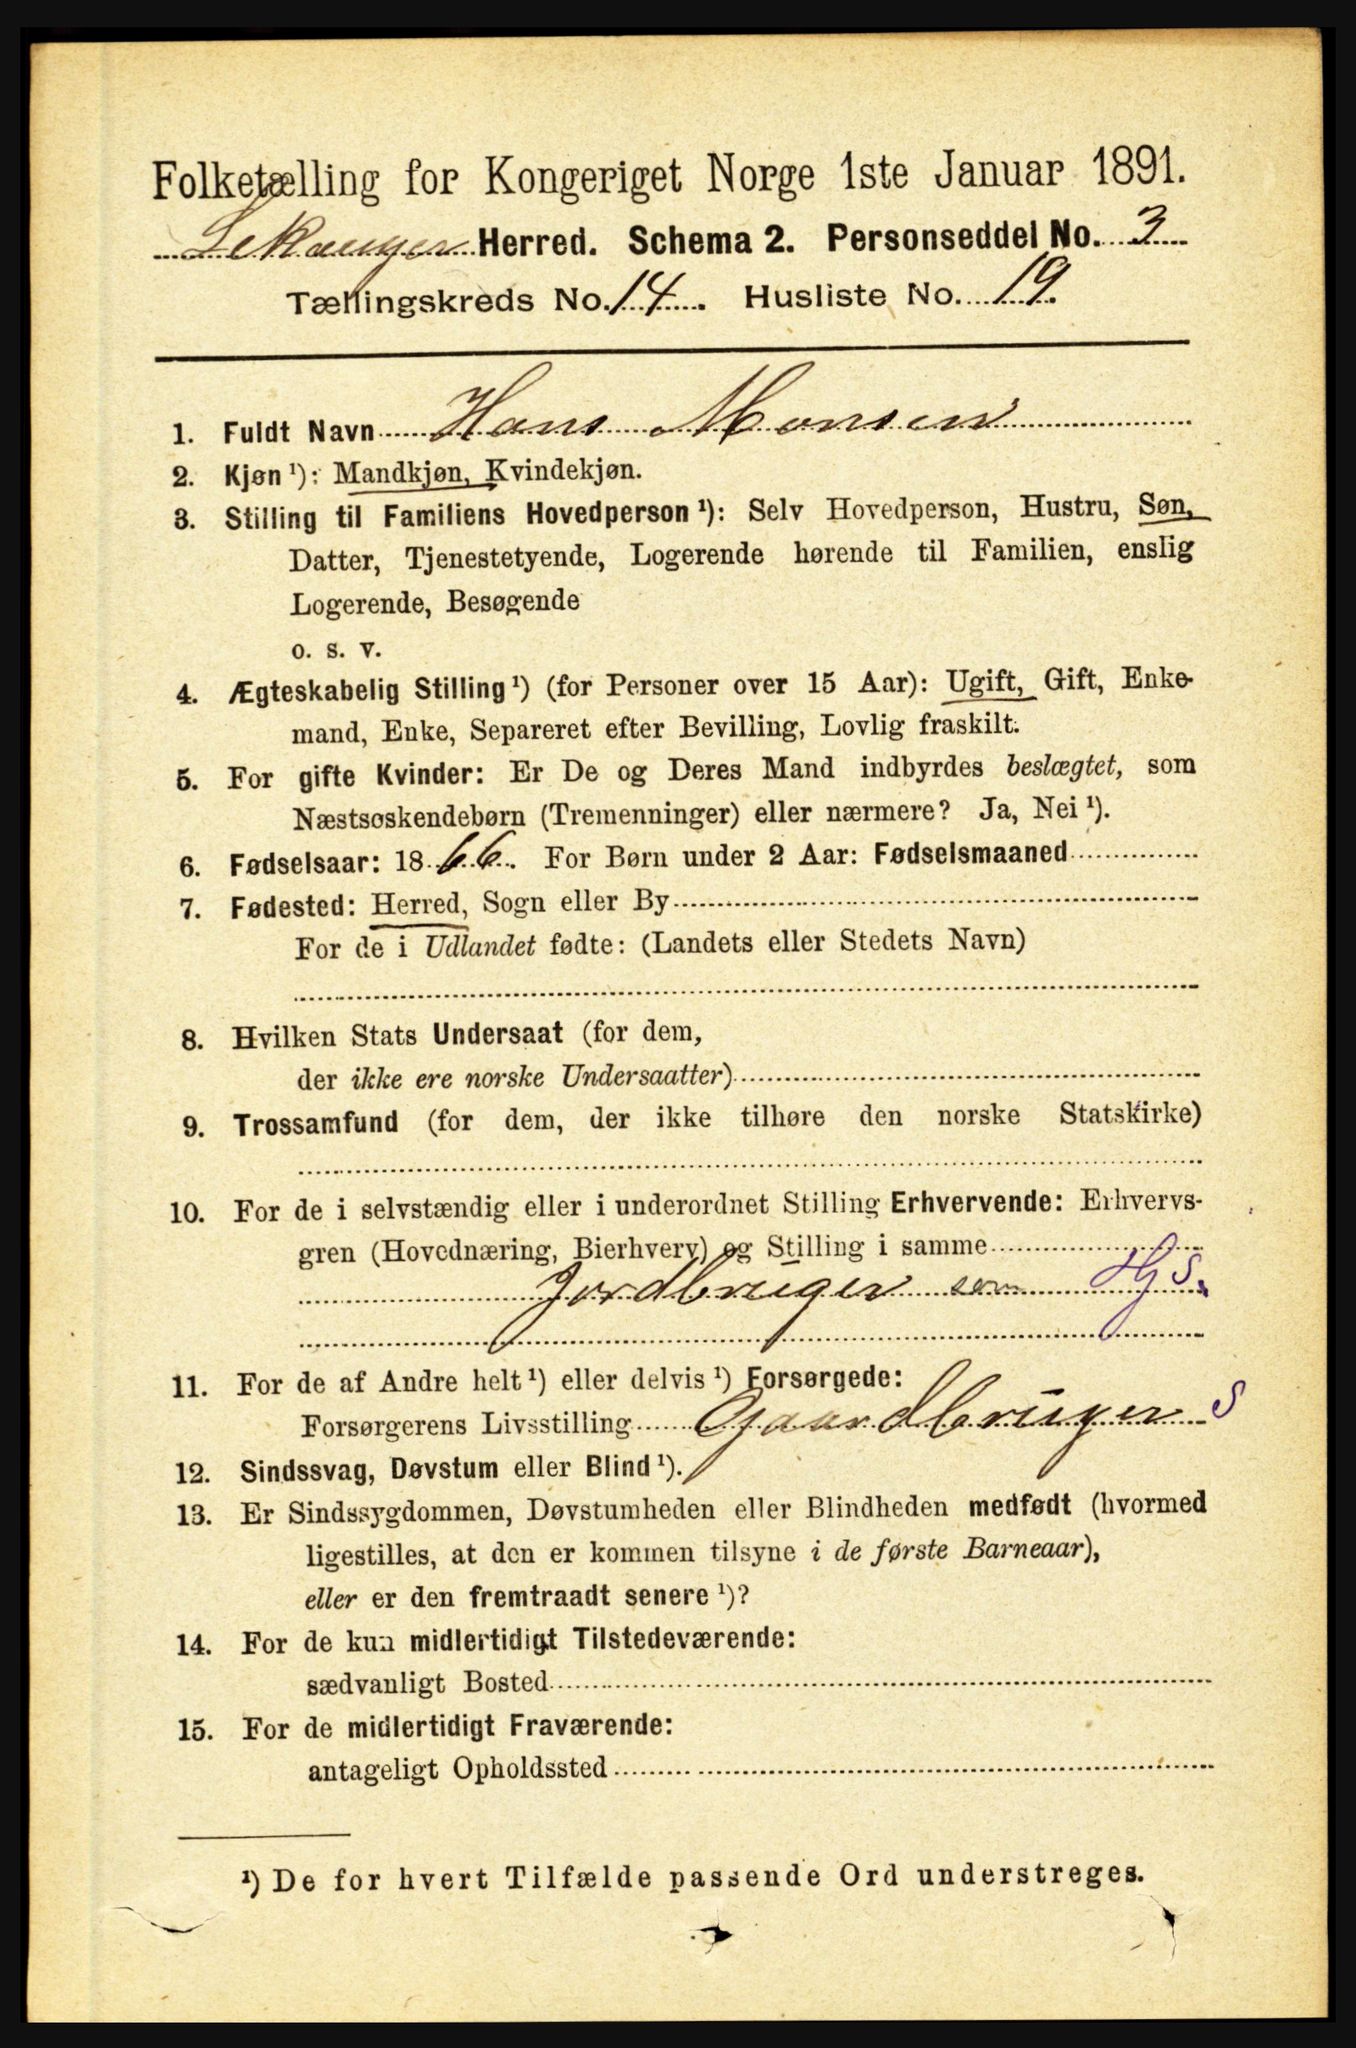 Folketælling for Kongeriget Norge 1ste Januar 1891.
Lekanger Herred. Schema 2. Personseddel No. 3
Tællingskreds No. 14. Husliste No. 19.
1. Fuldt Navn Hans Monsen
2. Kjøn ¹): Mandkjøn, Kvindekjøn.
3. Stilling til Familiens Hovedperson ¹): Selv Hovedperson, Hustru, Søn,
Datter, Tjenestetyende, Logerende hørende til Familien, enslig
Logerende, Besøgende
o. s. v.
4. Ægteskabelig Stilling ¹) (for Personer over 15 Aar): Ugift, Gift, Enke-
mand, Enke, Separeret efter Bevilling, Lovlig fraskilt.
5. For gifte Kvinder: Er De og Deres Mand indbyrdes beslægtet, som
Næstsøskendebørn (Tremenninger) eller nærmere? Ja, Nei ¹).
6. Fødselsaar: 1866. For Børn under 2 Aar: Fødselsmaaned
7. Fødested: Herred, Sogn eller By
For de i Udlandet fødte: (Landets eller Stedets Navn)
8. Hvilken Stats Undersaat (for dem,
der ikke ere norske Undersaatter)
9. Trossamfund (for dem, der ikke tilhøre den norske Statskirke)
10. For de i selvstændig eller i underordnet Stilling Erhvervende: Erhvervs-
gren (Hovednæring, Bierhverv) og Stilling i samme
Jordbruger som Hj S.
11. For de af Andre helt ¹) eller delvis ¹) Forsørgede:
Forsørgerens Livsstilling Gaardbruger S
12. Sindssvag, Døvstum eller Blind ¹).
13. Er Sindssygdommen, Døvstumheden eller Blindheden medfødt (hvormed
ligestilles, at den er kommen tilsyne i de første Barneaar),
eller er den fremtraadt senere ¹)?
14. For de kun midlertidigt Tilstedeværende:
sædvanligt Bosted
15. For de midlertidigt Fraværende:
antageligt Opholdssted
¹) De for hvert Tilfælde passende Ord understreges.